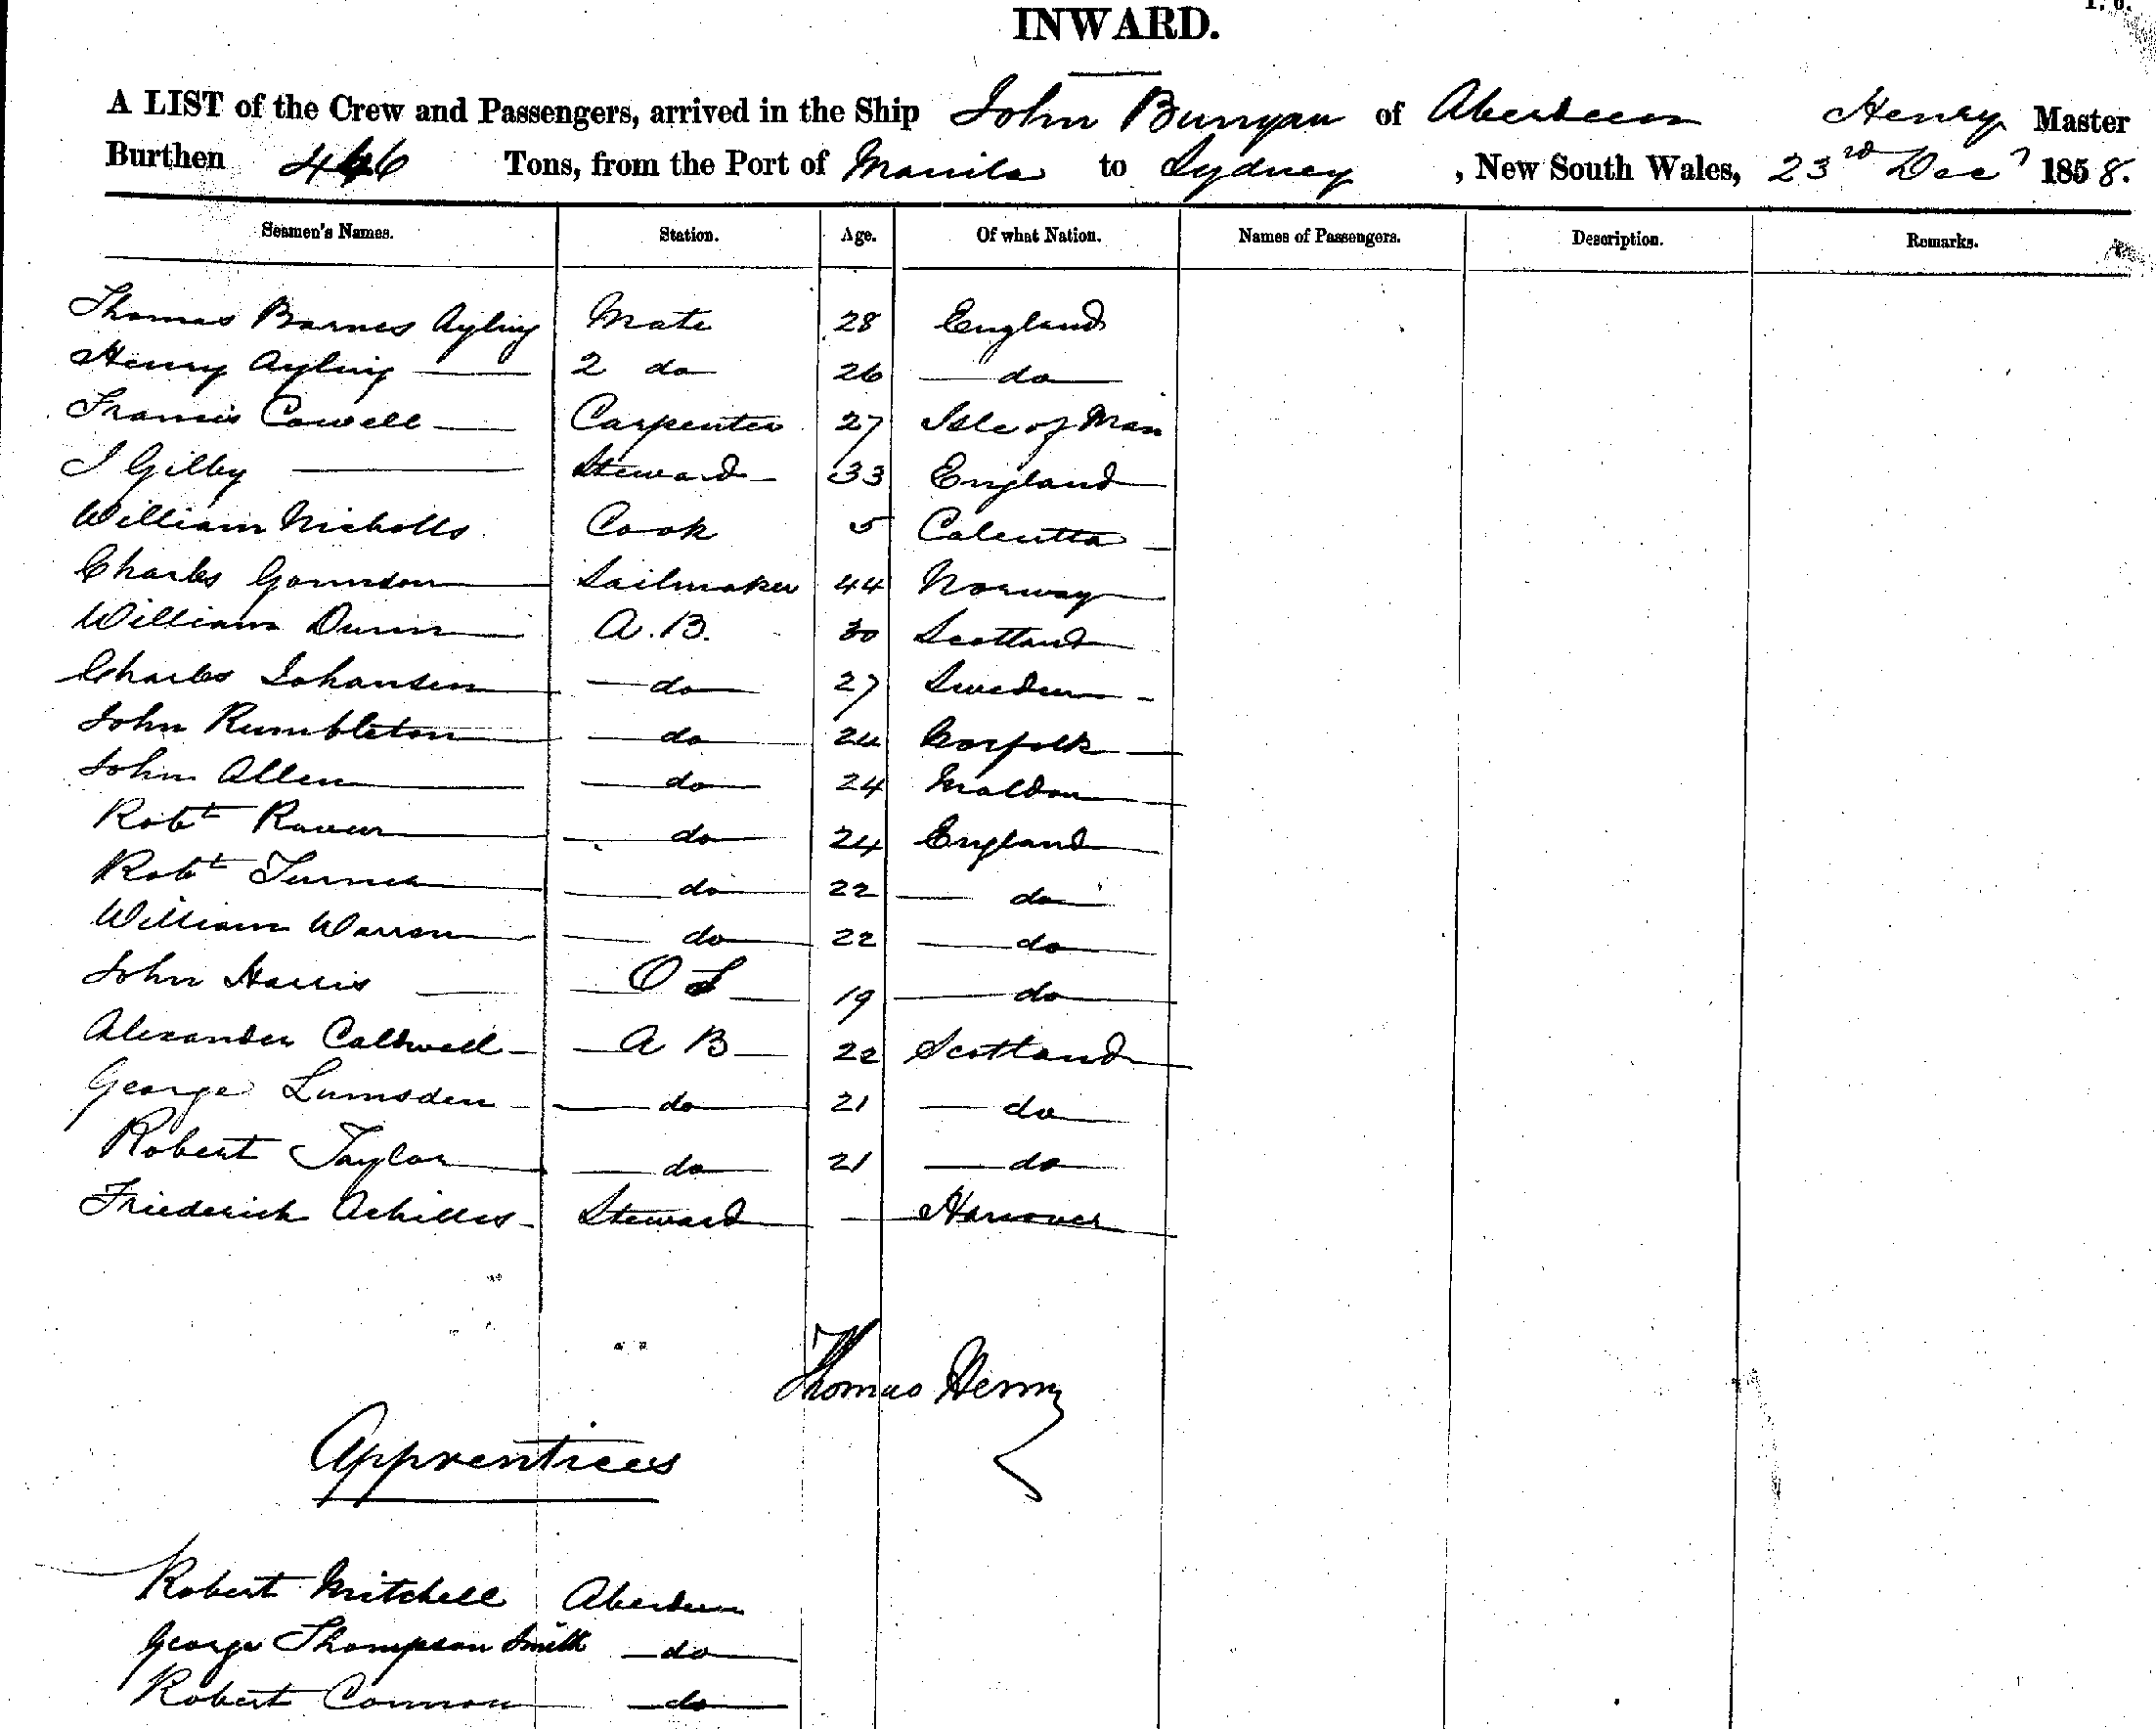 INWARD.
A LIST of the Crew and Passengers, arrived in the Ship John Bunyan of Aberdeen Henry Master
Burthen 446 Tons, from the Port of Manila to Sydney, New South Wales, 23rd Decr 1858.
Seamen's Names. Station. Age. Of what Nation. Names of Passengers. Description. Remarks.
Thomas Barnes Ayling Mate 28 England
Henry Ayling 2 do 26 do
Francis Cowell Carpenter 27 Isle of Man
J Gilby Steward 33 England
William Nicholls Cook 5 Calcutta
Charles Sailmaker 44 Norway
William Dunn A.B. 30 Scotland
Charles Johansen do 27 Sweden
John Rumbleton do 24 Norfolk
John Allen do 24 Maldon
Robt Raven do 24 England
Robt Turner do 22 do
William Warren do 22 do
John Harris O S 19 do
Alexander Caldwell A B 22 Scotland
George Lumsden do 21 do
Robert Taylor do 21 do
Friederich Achilles Steward Hanover
Thomas Henry
Apprentices
Robert Mitchell Aberdeen
George Thompson Smith do
Robert Connon do